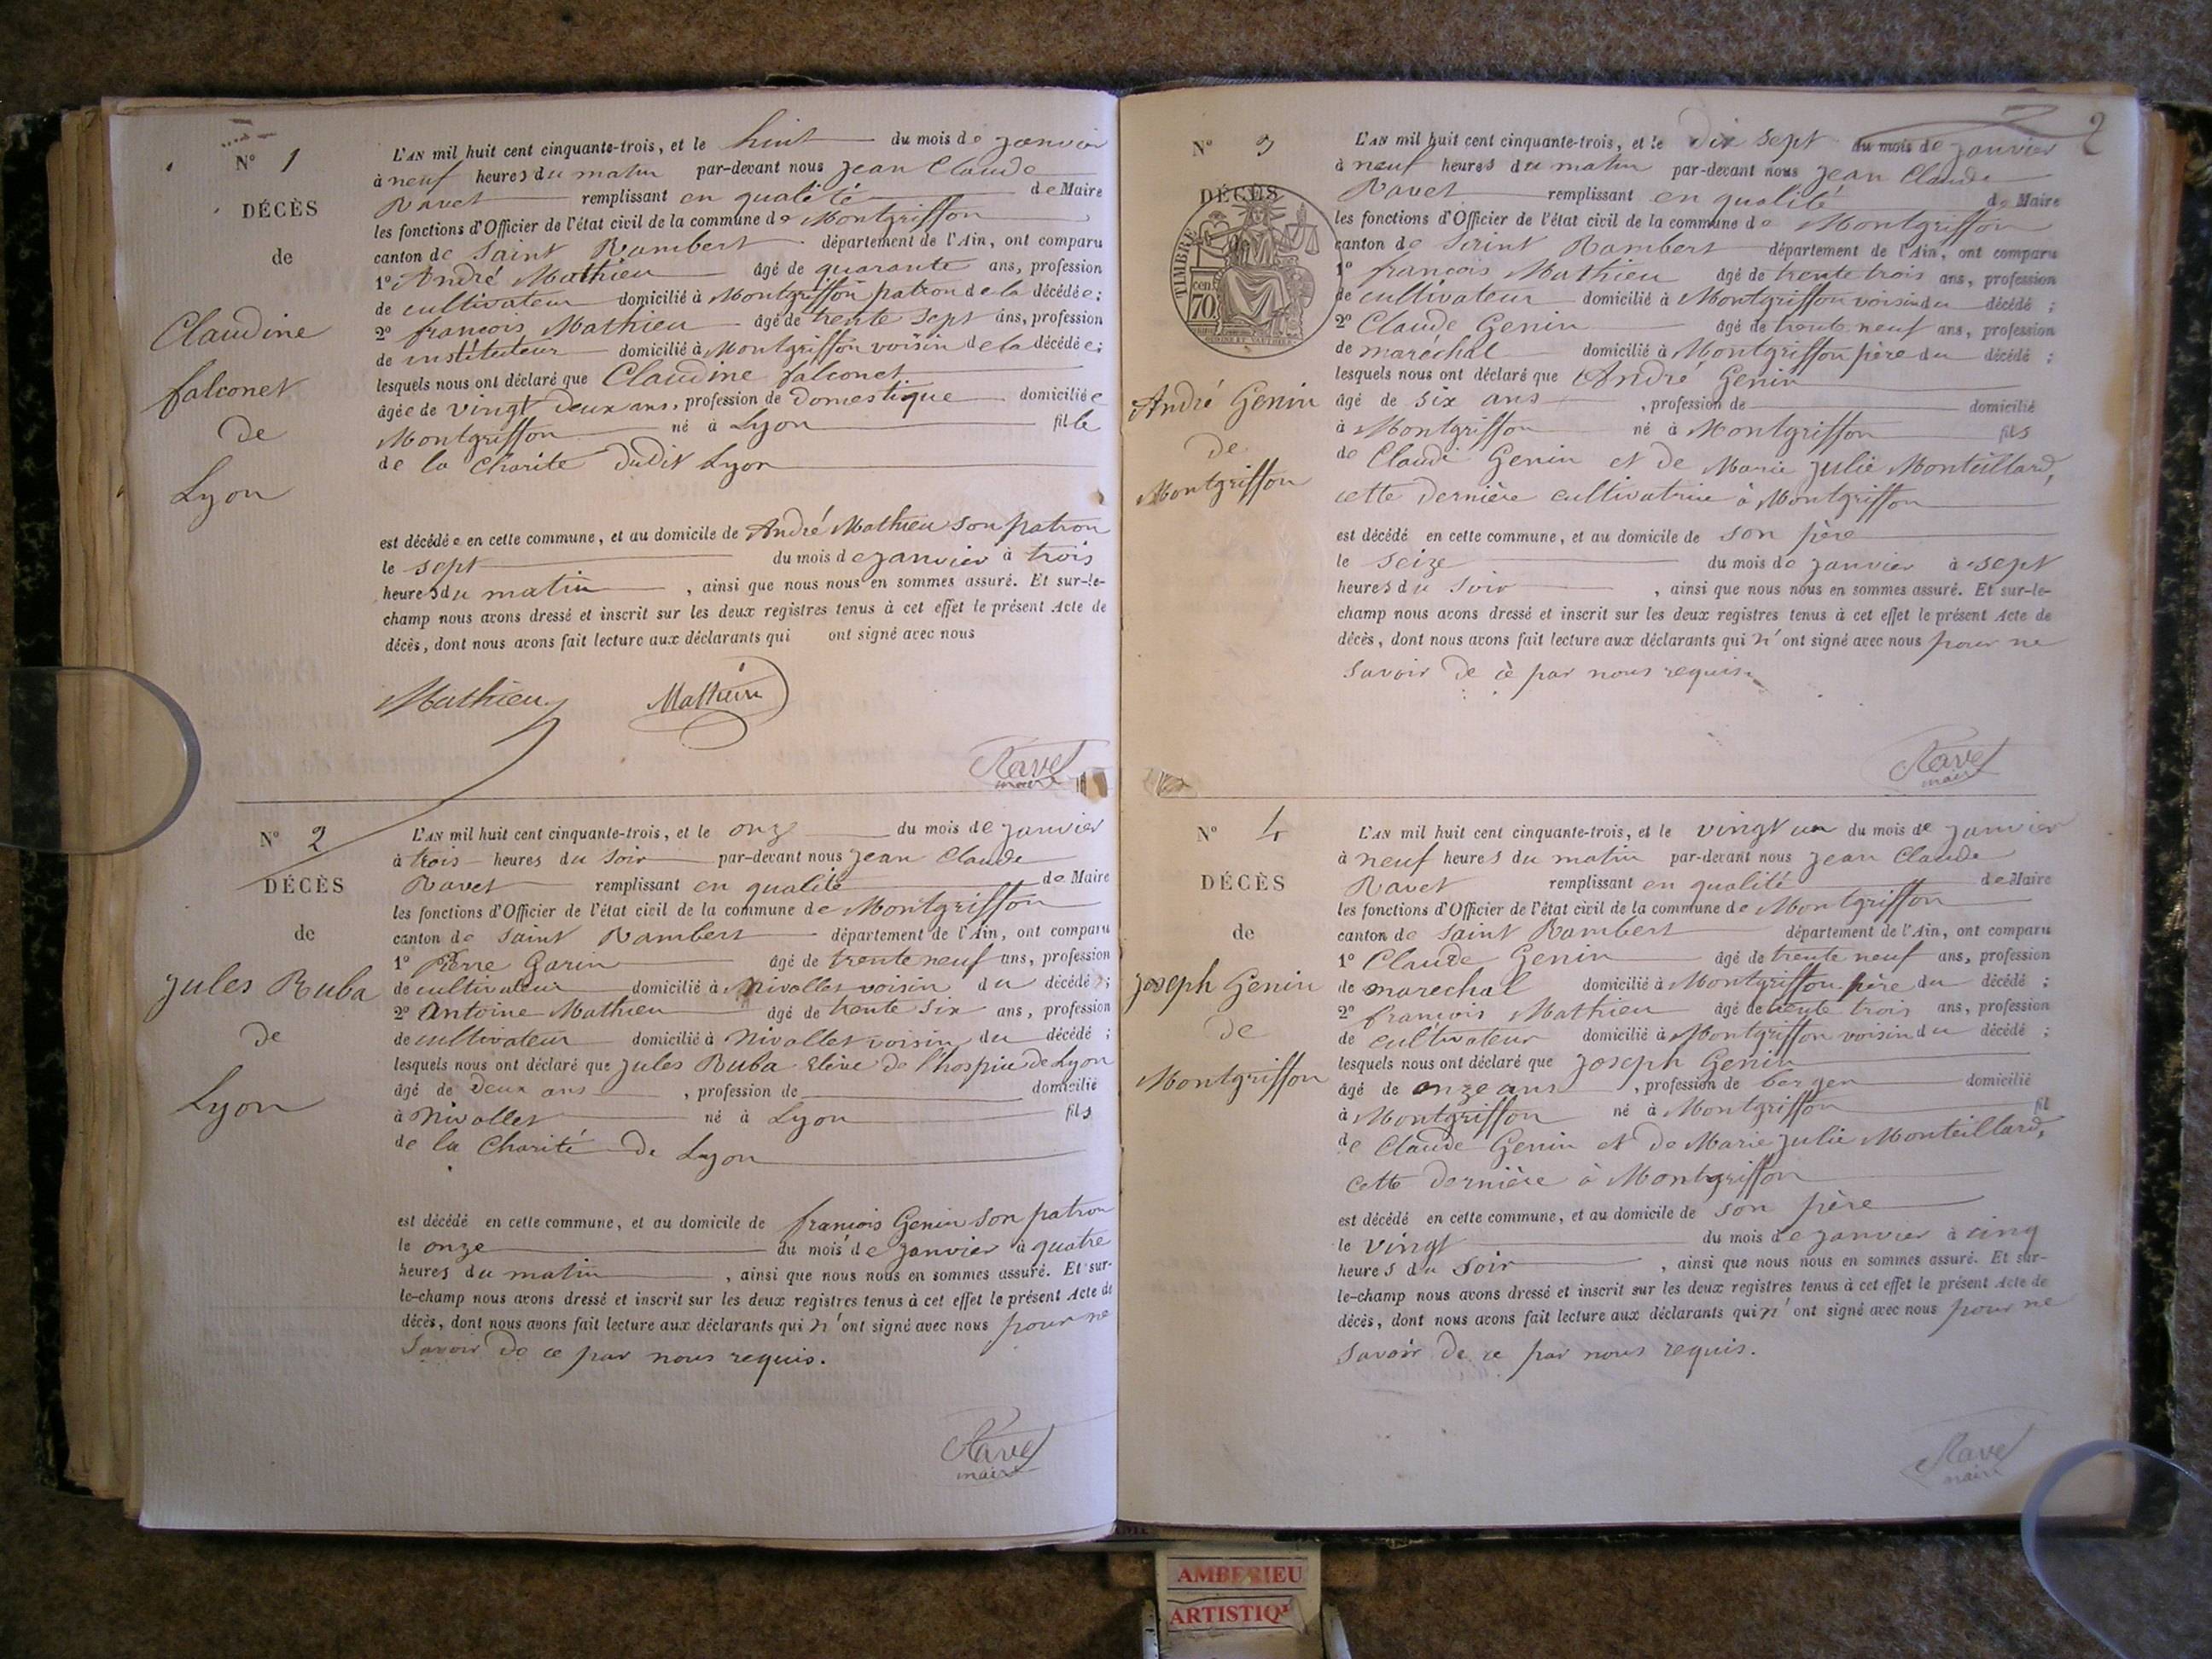 N° 1
DÉCÈS
de
Claudine
falconet
de
Lyon
L'AN mil huit cent cinquante-trois, et le huit du mois de janvier
à neuf heures du matin par-devant nous jean Claude
Ravet remplissant en qualité de Maire
les fonctions d'Officier de l'état civil de la commune de Montgriffon
canton de Saint Rambert département de l'Ain, ont comparu
1° André Mathieu âgé de quarante ans, profession
de cultivateur domicilié à Montgriffon patron de la décédée;
2° françois Mathieu âgé de trente sept ans, profession
de instituteur domicilié à Montgriffon voisin de la décédée;
lesquels nous ont déclaré que Claudine falconet
âgée de vingt deux ans, profession de domestique domiciliée
Montgriffon né à Lyon fille
de la Charité dudit Lyon
est décédée en cette commune, et au domicile de André Mathieu son patron
le sept du mois de janvier à trois
heures du matin, ainsi que nous nous en sommes assuré. Et sur-le-
champ nous avons dressé et inscrit sur les deux registres tenus à cet effet le présent Acte de
décès, dont nous avons fait lecture aux déclarants qui ont signé avec nous
Mathieu Mathieu
Ravet
maire
N° 2
DÉCÈS
de
jules Ruba
de
Lyon
L'AN mil huit cent cinquante-trois, et le onze du mois de janvier
à trois heures du soir par-devant nous jean Claude
Ravet remplissant en qualité de Maire
les fonctions d'Officier de l'état civil de la commune de Montgriffon
canton de Saint Rambert département de l'Ain, ont comparu
1° Pierre Garin âgé de trente neuf ans, profession
de cultivateur domicilié à Nivollet voisin du décédé;
2° Antoine Mathieu âgé de trente six ans, profession
de cultivateur domicilié à Nivollet voisin du décédé;
lesquels nous ont déclaré que jules Ruba Elève de l'hospice de Lyon
âgé de deux ans, profession de domicilié
à Nivollet né à Lyon fils
de la Charité de Lyon
est décédé en cette commune, et au domicile de françois Genin son patron
le onze du mois de janvier à quatre
heures du matin, ainsi que nous nous en sommes assuré. Et sur-
le-champ nous avons dressé et inscrit sur les deux registres tenus à cet effet le présent Acte de
décès, dont nous avons fait lecture aux déclarants qui n'ont signé avec nous pour ne
savoir de ce par nous requis.
Ravet
maire
2
N° 3
DÉCÈS
de
TIMBRE
70 cen
André Genin
de
Montgriffon
L'AN mil huit cent cinquante-trois, et le dix sept du mois de janvier
à neuf heures du matin par-devant nous jean Claude
Ravet remplissant en qualité de Maire
les fonctions d'Officier de l'état civil de la commune de Montgriffon
canton de Saint Rambert département de l'Ain, ont comparu
1° françois Mathieu âgé de trente trois ans, profession
de cultivateur domicilié à Montgriffon voisin du décédé;
2° Claude Genin âgé de trente neuf ans, profession
de maréchal domicilié à Montgriffon père du décédé;
lesquels nous ont déclaré que André Genin
âgé de six ans, profession de domicilié
à Montgriffon né à Montgriffon fils
de Claude Genin et de Marie julie Monteillard,
cette dernière cultivatrice à Montgriffon
est décédé en cette commune, et au domicile de son père
le seize du mois de janvier à sept
heures du soir, ainsi que nous nous en sommes assuré. Et sur-le-
champ nous avons dressé et inscrit sur les deux registres tenus à cet effet le présent Acte de
décès, dont nous avons fait lecture aux déclarants qui n'ont signé avec nous pour ne
savoir de ce par nous requis.
Ravet
maire
N° 4
DÉCÈS
de
joseph Genin
de
Montgriffon
L'AN mil huit cent cinquante-trois, et le vingt un du mois de janvier
à neuf heures du matin par-devant nous jean Claude
Ravet remplissant en qualité de Maire
les fonctions d'Officier de l'état civil de la commune de Montgriffon
canton de Saint Rambert département de l'Ain, ont comparu
1° Claude Genin âgé de trente neuf ans, profession
de marechal domicilié à Montgriffon père du décédé;
2° françois Mathieu âgé de trente trois ans, profession
de cultivateur domicilié à Montgriffon voisin du décédé;
lesquels nous ont déclaré que joseph Genin
âgé de onze ans, profession de berger domicilié
à Montgriffon né à Montgriffon fil
de Claude Genin et de Marie julie Monteillard,
cette dernière à Montgriffon
est décédé en cette commune, et au domicile de son père
le vingt du mois de janvier à cinq
heures du soir, ainsi que nous nous en sommes assuré. Et sur-
le-champ nous avons dressé et inscrit sur les deux registres tenus à cet effet le présent Acte de
décès, dont nous avons fait lecture aux déclarants qui n'ont signé avec nous pour ne
savoir de ce par nous requis.
Ravet
maire
AMBERIEU
ARTISTIQ